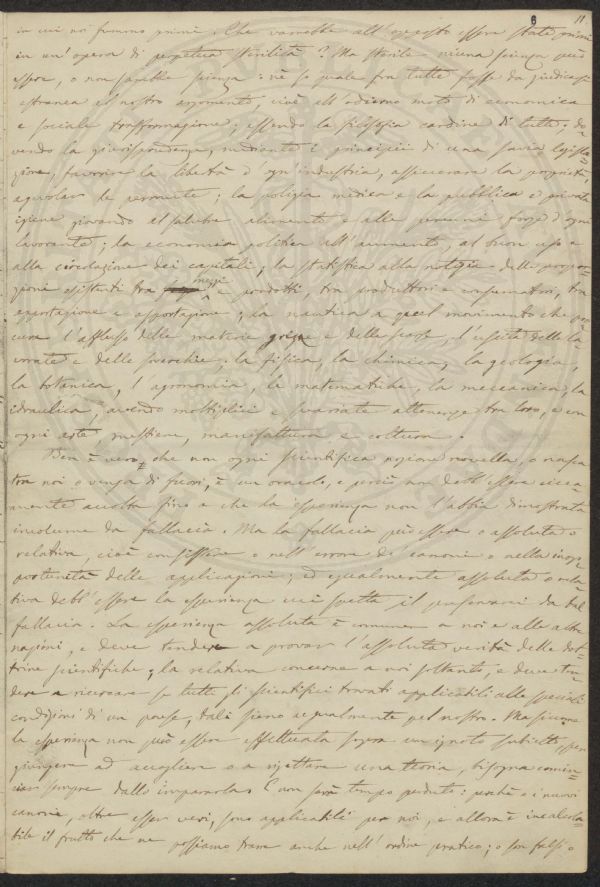 6 11
in cui noi fummo primi. Che varrebbe all'opposto essere stati primi
in un'opera di perpetua sterilità? Ma sterile niuna scienza può
essere, o non sarebbe scienza: nè so quale fra tutte fosse da giudicarsi
estranea al nostro argomento, cioè all'odierno moto di economica
e sociale trasformazione; essendo la filosofia cardine di tutte; do-
vendo la giurisprudenza, mediante i principii di una savia legisla-
zione, favorire la libertà d'ogn'industria, assicurare la proprietà,
agevolar le permute; la polizia medica e la pubblica e privata
igiene giovando al salubre alimento e alle forze d'ogni
lavorante; la economia politica all'aumento, al buon uso e
alla circolazione dei capitali; la statistica alla notizia delle propor-
zioni esistenti tra mezzi e prodotti, tra produttori e consumatori, tra
esportazione e asportazione; la nautica a quel movimento che pro-
cura l'afflusso delle materie gresse e delle scarse, l'uscita delle la-
vorate e delle soverchie; la fisica, la chimica, la geologia,
la botanica, l'agronomia, le matematiche, la meccanica, la
idraulica, avendo moltiplici e svariate attenenze tra loro, e con
ogni arte, mestiere, manifattura e coltura.
Ben è vero, che non ogni scientifica nozione novella, o nasca
tra noi o venga di fuori, è un oracolo, e perciò non debb'essere cieca-
mente accolta fino a che la esperienza non l'abbia dimostrata
incolume da fallacia. Ma la fallacia può essere o assoluta o
relativa, cioè consistere o nell'errore de' canoni o nella inop-
portunità delle applicazioni; ed egualmente assoluta o rela-
tiva debb'essere la esperienza cui spetta il preservarci da tal
fallacia. La esperienza assoluta è comune a noi e alle altre
nazioni, e deve tendere a provar l'assoluta verità delle dot-
trine scientifiche; la relativa concerne a noi soltanto, e deve ten-
dere a ricercare se tutti gli scientifici trovati applicabili alle speciali
condizioni di un paese, tali sieno egualmente pel nostro. Ma siccome
la esperienza non può essere effettuata sopra un ignoto subietto,
giungere ad accogliere o a rigettare una teoria, bisogna comin-
ciar sempre dallo impararla. E non sarà tempo perduto: perchè o i nuovi
canoni, oltre esser veri, sono applicabili per noi, e allora è incalcola-
bile il frutto che ne possiamo trarre anche nell'ordine pratico; o son falsi o